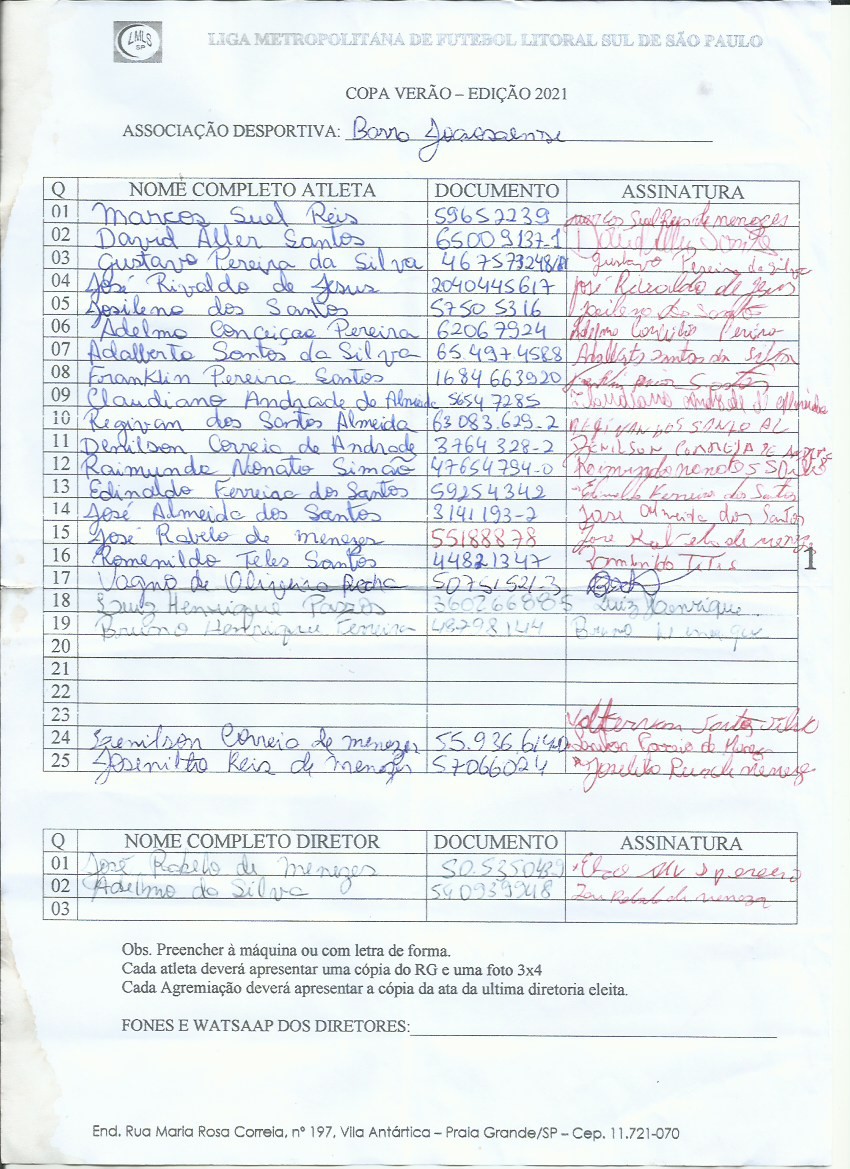 LMLS
SP
LIGA METROPOLITANA DE FUTEBOL LITORAL SUL DE SÃO PAULO
COPA VERÃO – EDIÇÃO 2021
ASSOCIAÇÃO DESPORTIVA: Barro
Q NOME COMPLETO ATLETA DOCUMENTO ASSINATURA
01 Marcos Suel Reis 59652239 Marcos Suel Reis de menezes
02 David Aller Santos 65009137-1 David Aller Santos
03 Gustavo Pereira da Silva 467573248 Gustavo Pereira da Silva
04 José Rivaldo de Jesus 2040445617 José Rivaldo de Jesus
05 Josileno dos Santos 57505316 Josileno dos Santos
06 Adelmo Conceiçao Pereira 62067924 Adelmo Pereira
07 Adalberto Santos da Silva 65.4974588 Santos da Silva
08 Franklin Pereira Santos 1684663920 Santos
09 Claudiano Andrade de Almeida 56547285
10 Regivan dos Santos Almeida 63083.629-2 REGIVAN DOS SANTO AL
11 Denilson Correia de Andrade 3764328-2 DENILSON CORREIA DE
12 Raimundo Nonato Simão 47654794-0 Raimundo nonato
13 Edinaldo Ferreira dos Santos 59254342 Ferreira dos Santos
14 José Almeida dos Santos 3141193-2 Jose Almeida dos Santos
15 José Rabelo de menezes 55188878 Jose Rabelo de menezes
16 Romenildo Teles Santos 44821347
1
17 Vagno de Oliveira Rocha 50751521-3
18 Luiz Henrique 360266885 Luiz Henrique
19 Bruno Henrique Ferreira 48298144 Bruno Henrique
20
21
22
23
24 Correia de menezes 55.936.614
25 Josenilto Reis de Menezes 57066024
Q NOME COMPLETO DIRETOR DOCUMENTO ASSINATURA
01 José Rabelo de Menezes 50.5350489
02 Adelmo da Silva 590939948 Jose Rabelo de menezes
03
Obs. Preencher à máquina ou com letra de forma.
Cada atleta deverá apresentar uma cópia do RG e uma foto 3x4
Cada Agremiação deverá apresentar a cópia da ata da ultima diretoria eleita.
FONES E WATSAAP DOS DIRETORES:
End. Rua Maria Rosa Correia, nº 197, Vila Antártica – Praia Grande/SP – Cep. 11.721-070